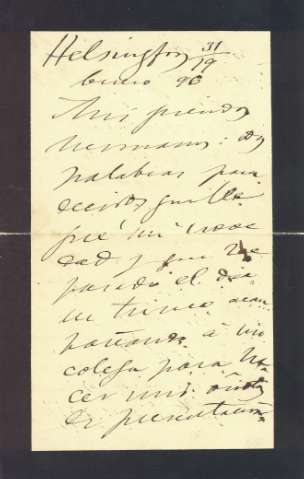 Helsingfors 31/19
enero 96
Mis queridos
hermanos: dos
palabras para
deciros que lle
gué sin nove
dad y que he
pasado el dia
en trineo acom
pañando á mi
colega para ha
cer mis visitas
de presentación